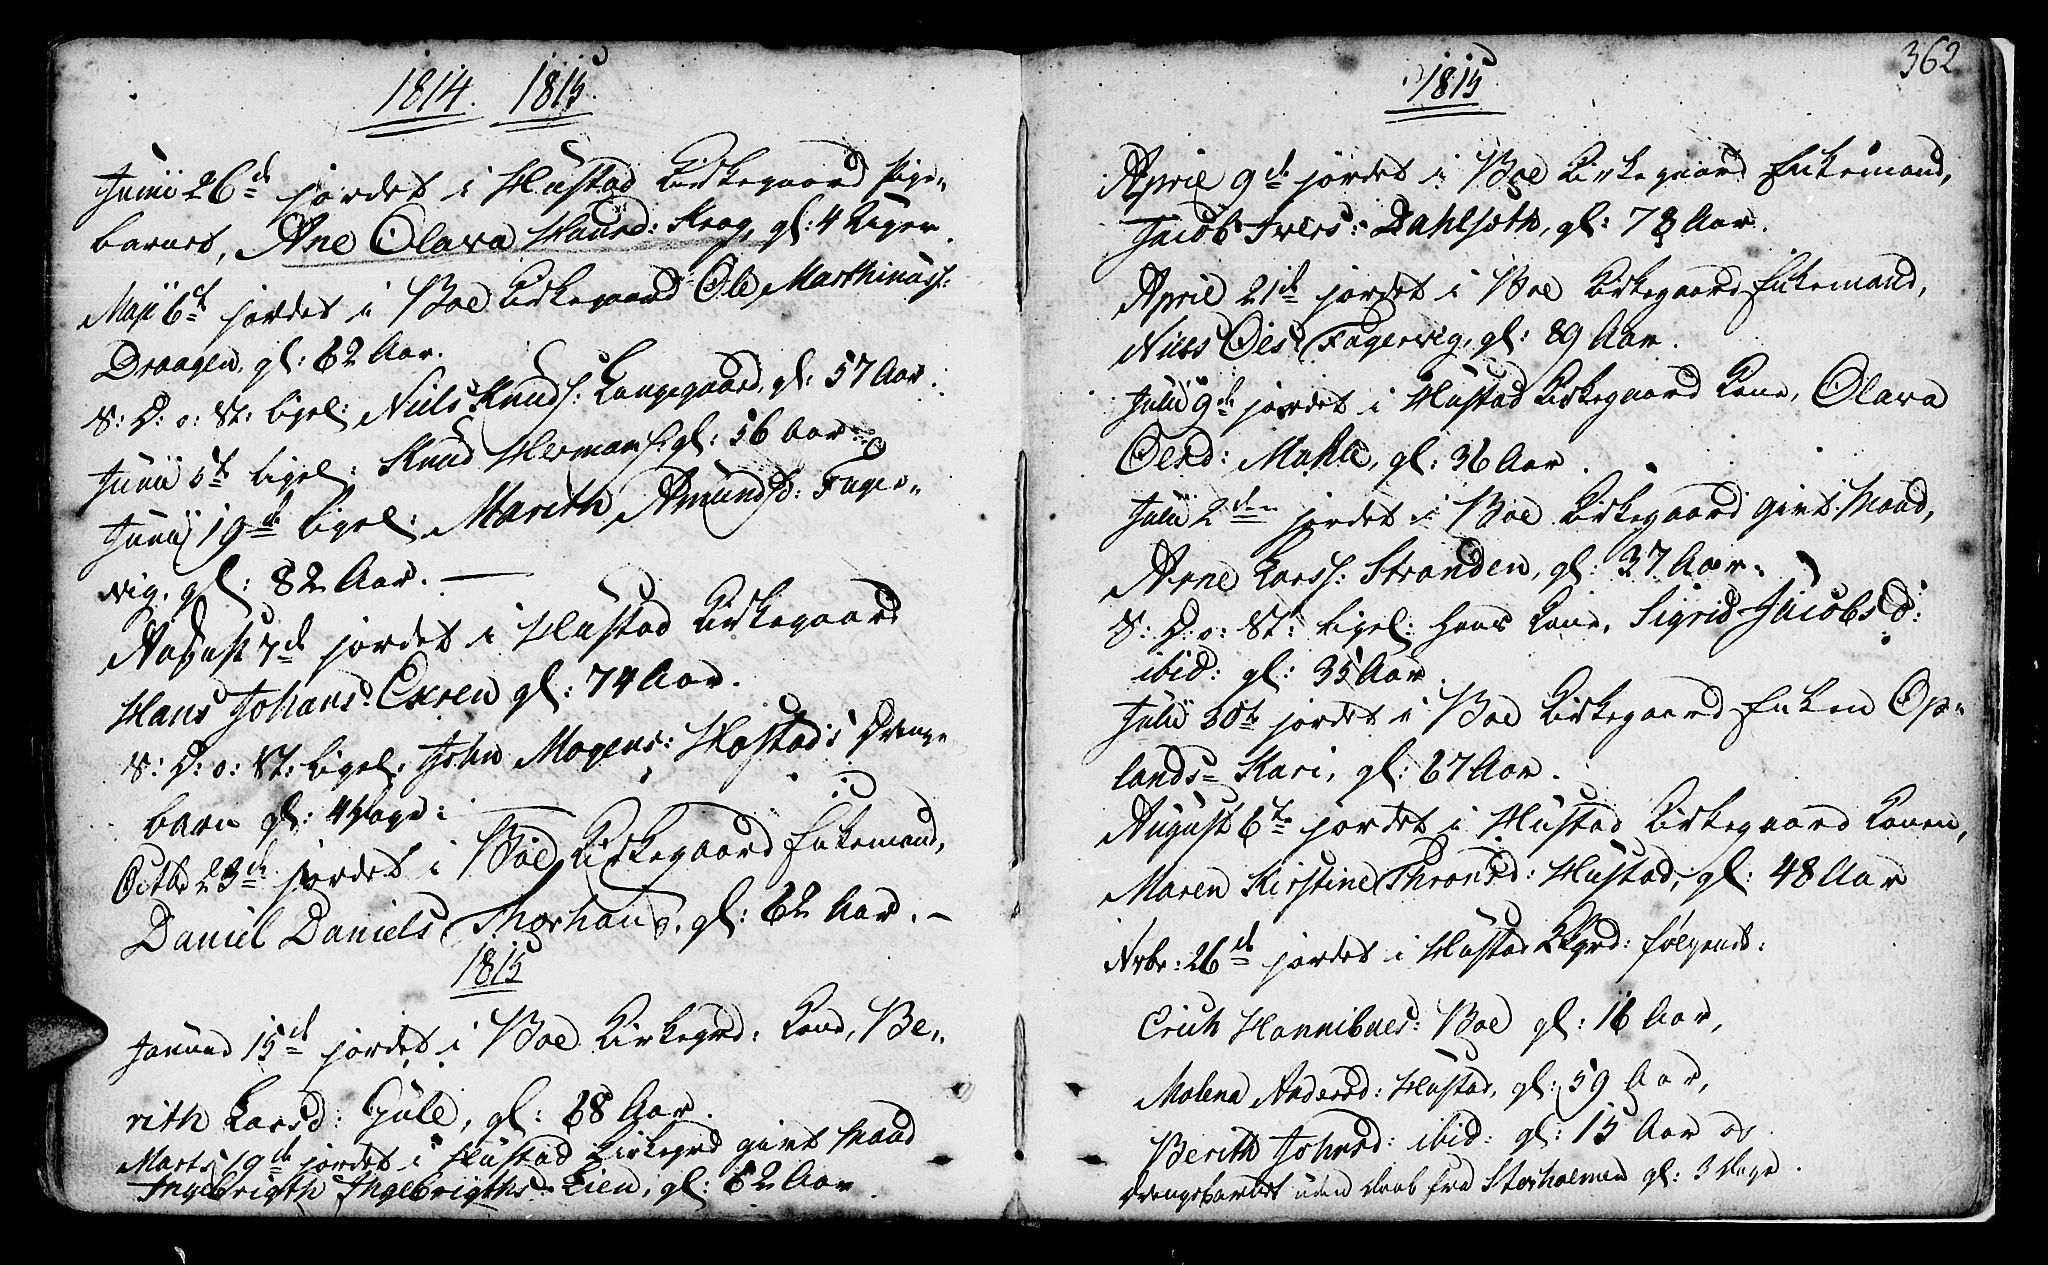 1814. 1815.
Junii 26de jordet i Hustad Kirkegaard Pige-
barnet, Ane Olava Knud: Krog, gl: 4 Uger.
Maji 6te jordet i Boe Kirkegaard Ole Marthinuss:
Draagen, gl: 62 Aar.
S: D: o: St: ligel: Niels Knuds: Langegaard, gl: 57 Aar.
Junii 5te ligel: Knud Hermans: gl: 56 Aar.
Junii 19de ligel: Marith Amundsd: Fager-
vig, gl: 82 Aar.
August 7de jordet i Hustad Kirkegaard
Hans Johans: Exren gl: 74 Aar.
S: D: o: St: ligel: John Mogens: Hostads Drenge
barn gl: 4 Dage:
Octbr 23de jordet i Boe Kirkegaard Enkemand,
Daniel Daniels Thorhaus, gl: 62 Aar.
1815
Januar 15de jordet i Boe Kirkegrd: Kone, Be-
rith Larsd: Gule, gl: 68 Aar.
Marts 19de jordet i Hustad Kirkegrd givt Mand
Ingebrigth Ingebrigths: Lien, gl: 62 Aar.
362
1815
April 9de jordet i Boe Kirkegaard Enkemand,
Jacob Ivers: Dahlsæth, gl: 78 Aar.
April 21de jordet i Boe Kirkegaard Enkemand,
Niels Oles: Fagervig, gl: 89 Aar.
Julii 9de jordet i Hustad Kirkegaard Kone, Olava
Olesd: Mahle, gl: 36 Aar.
Julii 2den jordet i Boe Kirkegaard givt Mand,
Arne Larss: Stranden, gl: 37 Aar.
S: D: o: St: ligel: hans Kone, Sigrid Jacobsd:
ibid: gl: 35 Aar.
Julii 30te jordet i Boe Kirkegaard Enken Op-
lands- Kari, gl: 67 Aar.
August 6te jordet i Hustad Kirkegaard Konen,
Maren Kirstine Thronsd: Hustad, gl: 48 Aar
Nvbr: 26de jordet i Hustad Kkgrd: følgende:
Erich Hannibals: Boe gl: 16 Aar,
Malena Andersd: Hustad, gl: 59 Aar,
Berith Johnsd: ibid: gl: 15 Aar og
Drengebarnet uden Daab fra Storholmen gl: 3 Dage.